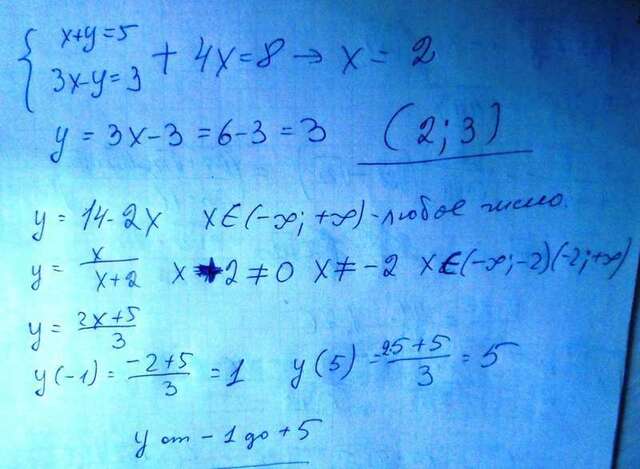 { x+y=5
3x-y=3 + 4x=8 → x = 2
y = 3x-3 = 6-3 = 3 (2; 3)
y = 14-2x x∈(-∞; +∞) - любое число.
y = x/(x+2) x+2≠0 x≠-2 x∈(-∞;-2)(-2;+∞)
y = (2x+5)/3
y(-1) = (-2+5)/3 = 1 y(5) = (2·5+5)/3 = 5
y от -1 до +5